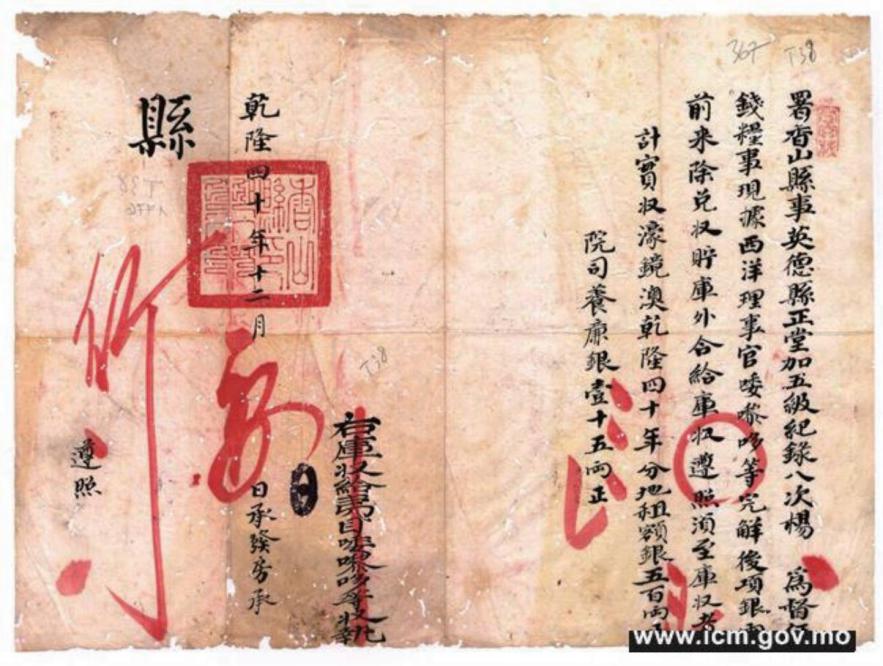 署香山縣事英德縣正堂加五級紀錄八次楊 為督
錢糧事現據西洋理事官唩嚟哆等完解後項銀
前来除兌収貯庫外合給庫収遵照須至庫収者
計實収濠鏡澳乾隆四十年分地租額銀五百兩正
院司養廉銀壹十五兩正
右庫収給夷目唩嚟哆等收執
乾隆四十年十二月
日承發房承
縣
遵照
香山縣印
367
T38
T38
www.icm.gov.mo